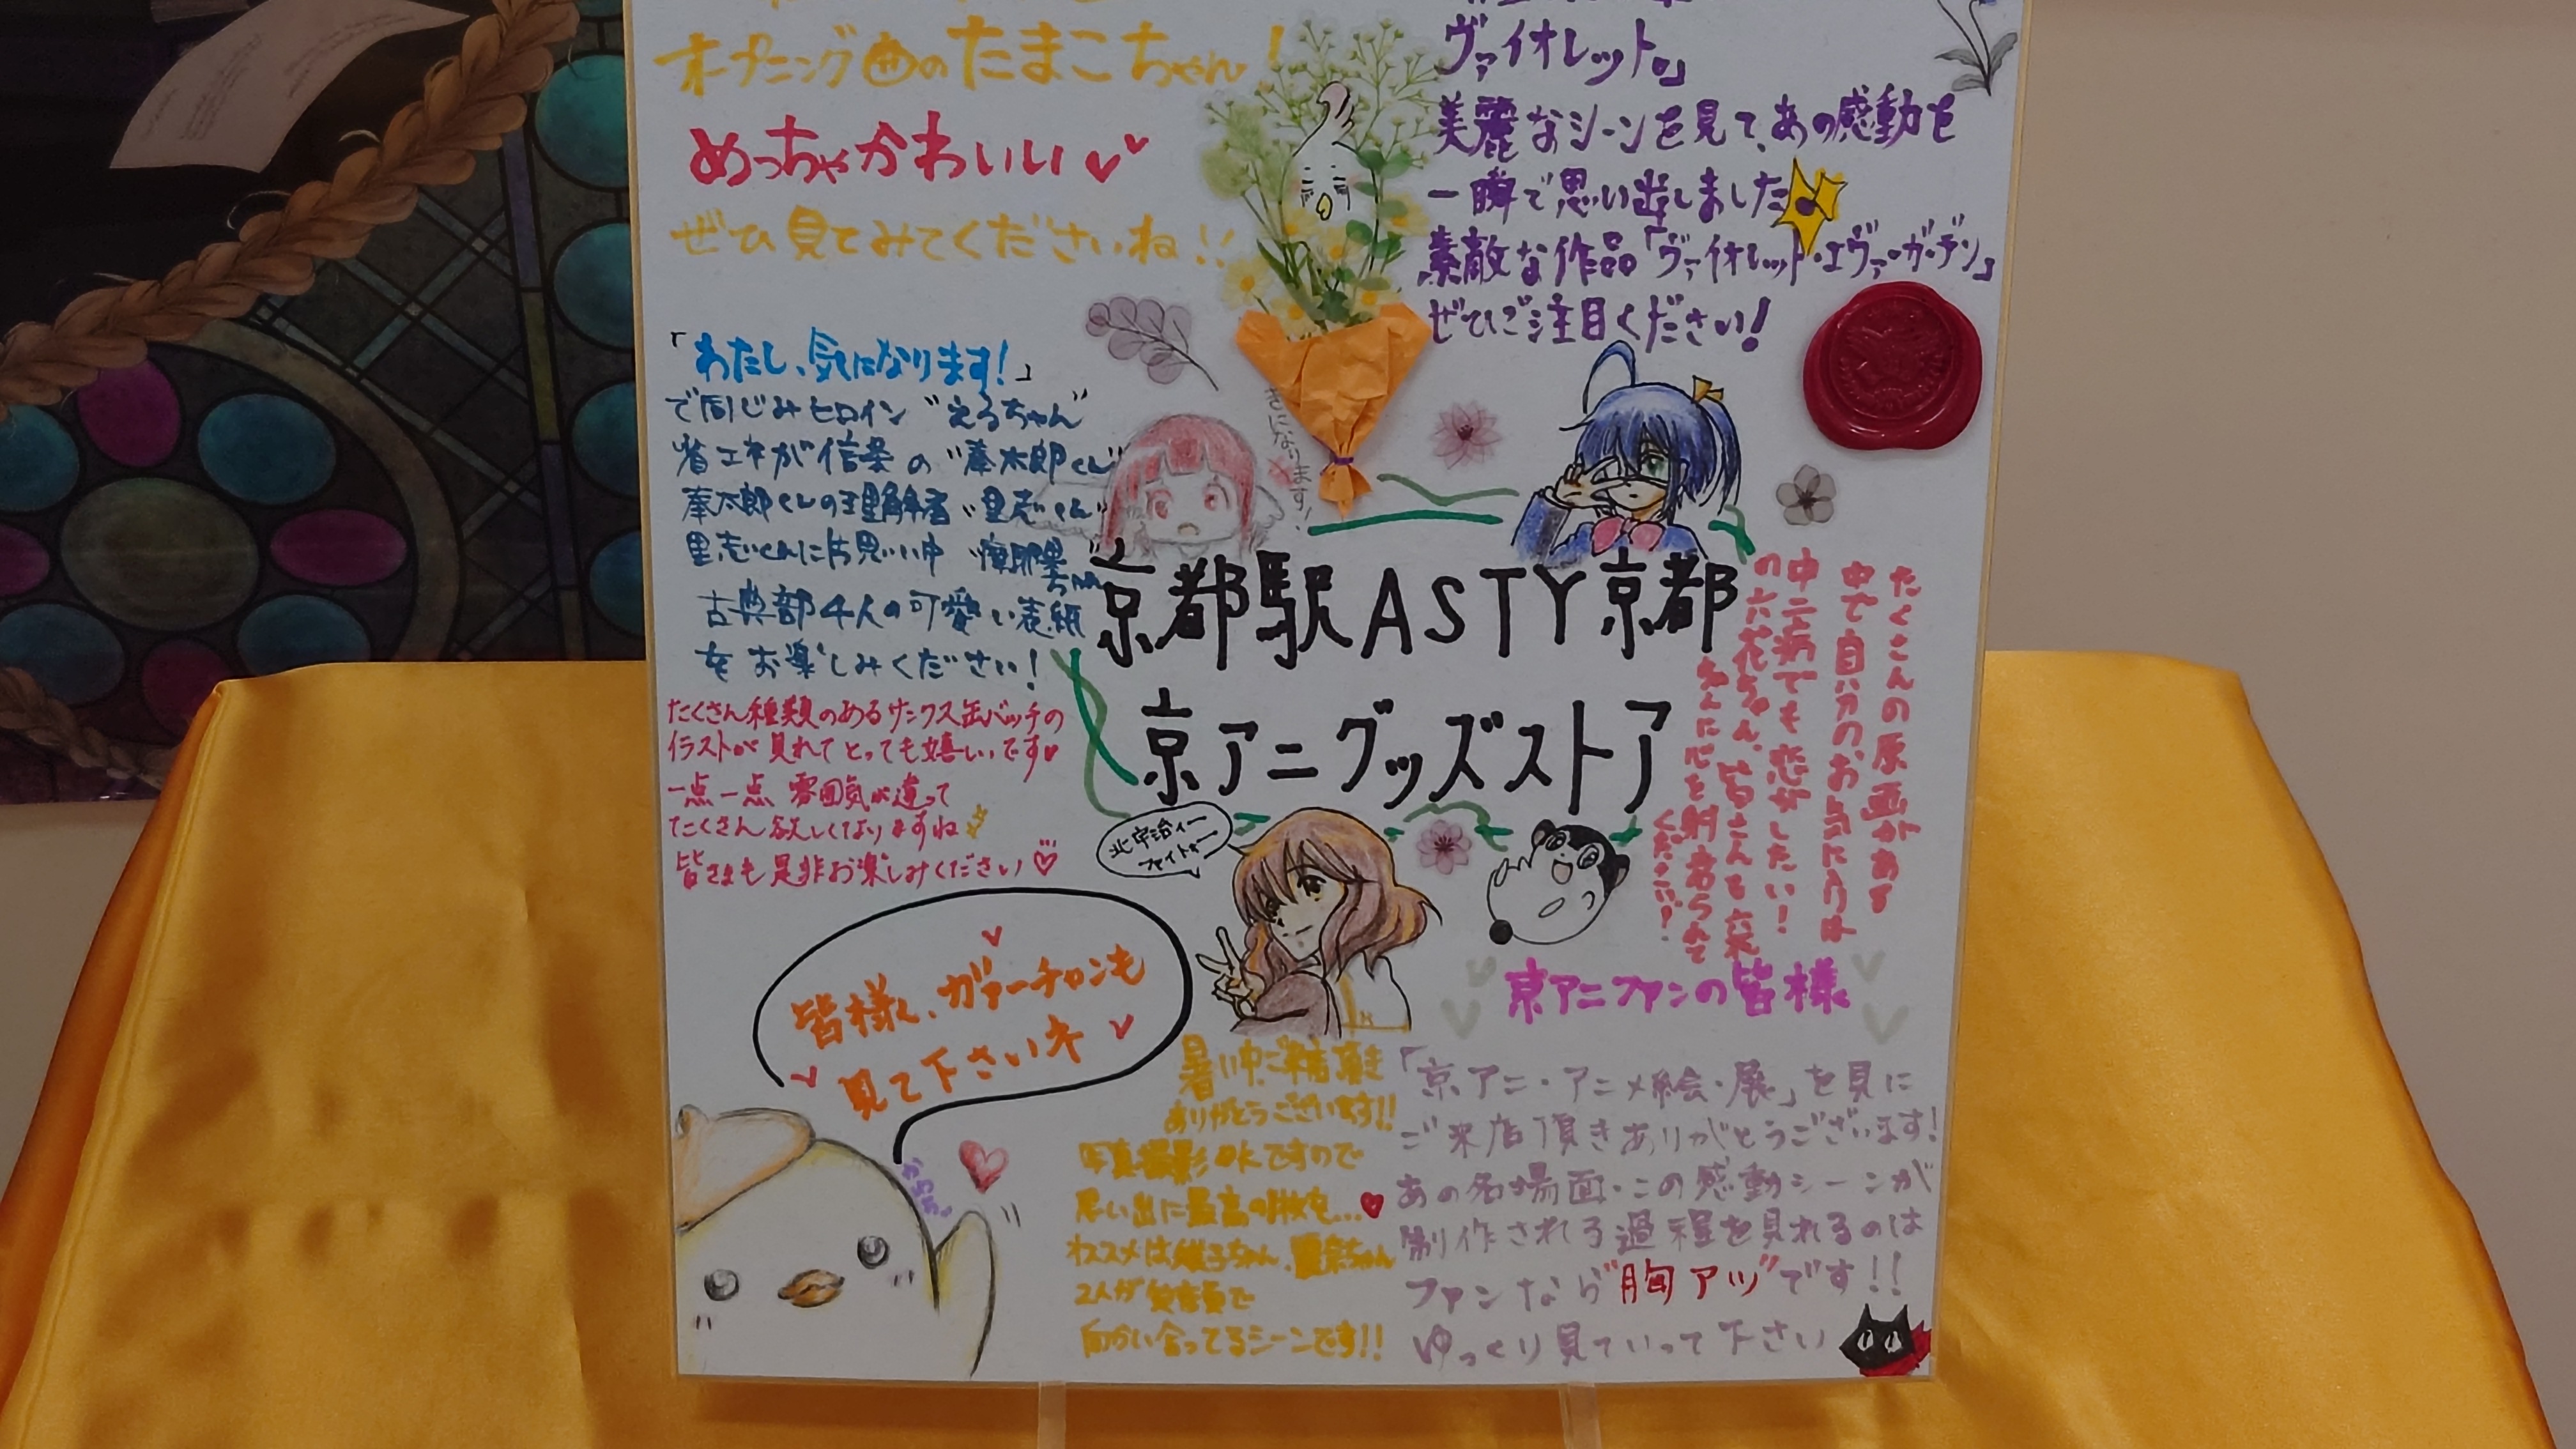 オープニング曲のたまこちゃん！
めっちゃかわいい
ぜひ見てみてくださいね!!
ヴァイオレット。」
美麗なシーンを見て、あの感動を
一瞬で思い出しました
素敵な作品「ヴァイオレット・エヴァーガーデン」
ぜひご注目ください!
「わたし、気になります!」
で同じみヒロイン"えるちゃん"
省エネが信条の"奉太郎くん"
奉太郎くんの理解者"里志くん"
里志くんに片思い中"摩耶花ちゃん"
古典部4人の可愛い表紙
をお楽しみください!
きになります!
京都駅ASTY京都
京アニグッズストア
たくさんの原画がある
中で自分のお気に入りは
中二病でも恋がしたい!
の六花ちゃん、皆さんも六花
ちゃんに心を射あられて
ください!
たくさん種類のあるサンクス缶バッチの
イラストが見れてとっても嬉しいです
一点一点 雰囲気が違って
たくさん欲しくなりますね
皆さまも是非お楽しみください
北宇治ィー
ファイトォー
皆様、ガァーチャンも
見て下さいネ
京アニファンの皆様
暑い中、ご来店頂き
ありがとうございます!!
写真撮影OKですので
思い出に最高の1枚を...
オススメは久美子ちゃん、麗奈ちゃん
2人が
向かい合ってるシーンです!!
「京アニ・アニメ絵・展」を見に
ご来店頂きありがとうございます!
あの名場面・この感動シーンが
制作される過程を見れるのは
ファンなら"胸アツ"です!!
ゆっくり見ていって下さい